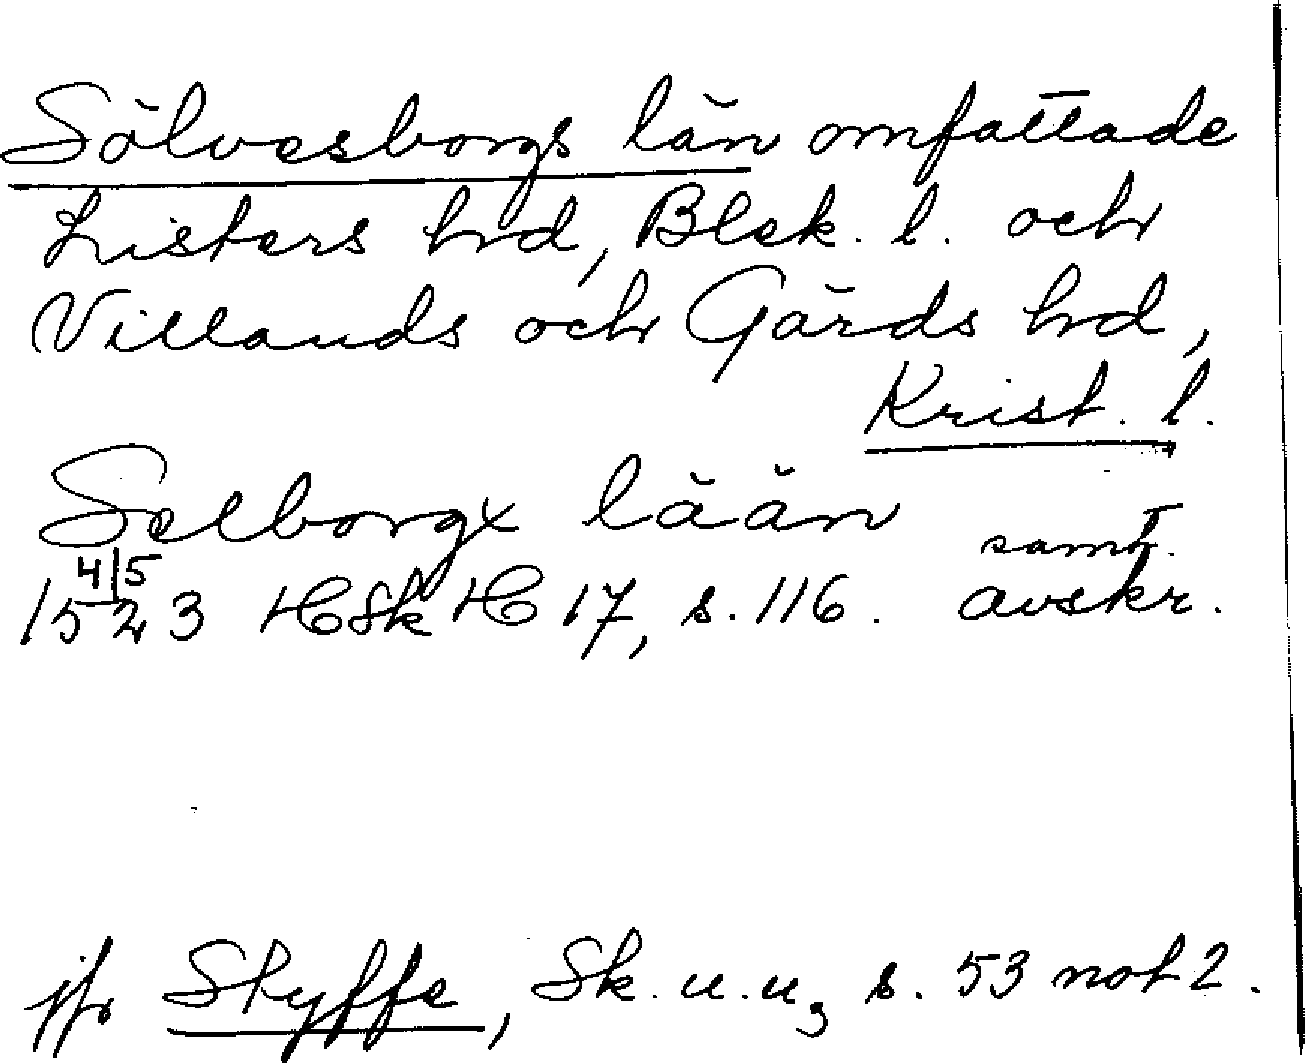 Sölvesborgs län omfattade
Listers hrd, Blek. l. och
Villands och Gärds hrd,
Krist. l.
Selborgx lään
samt.
4/5
1523 HSkH 17, s. 116. avskr.
jfr Styffe, Sk. u. u3 s. 53 not 2.